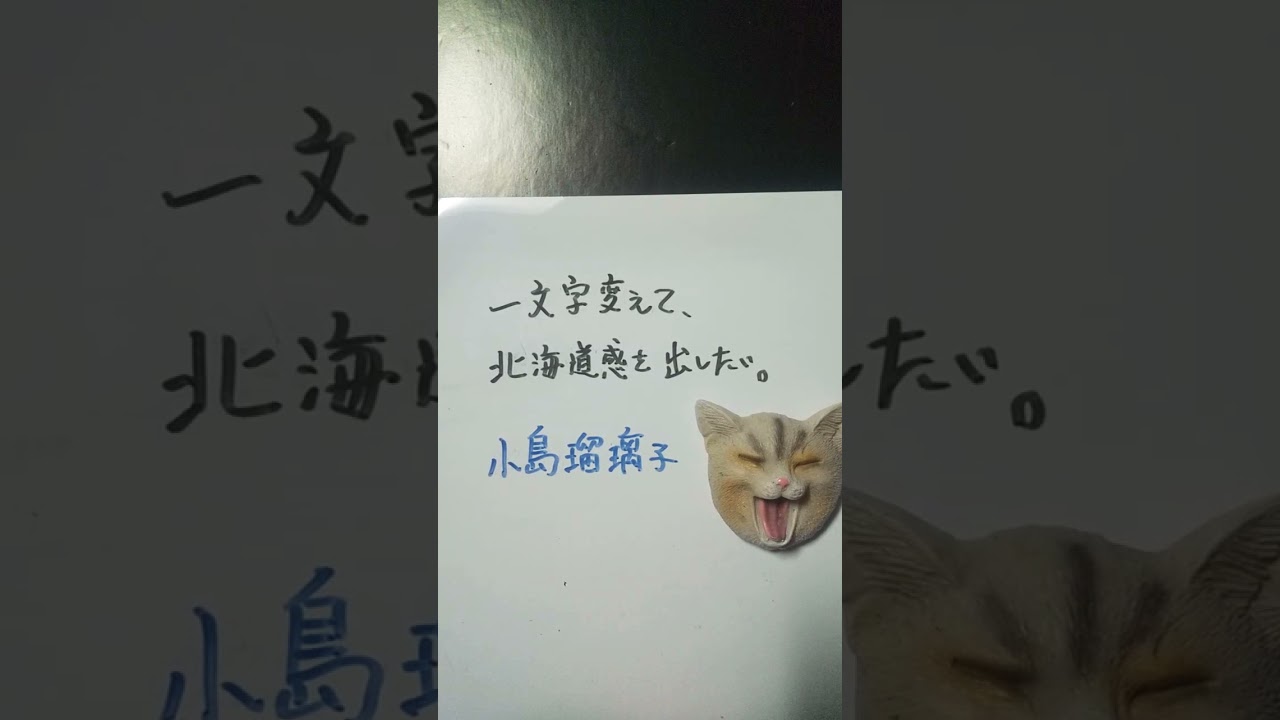 一文字変えて、
北海道感を出したい。
小島瑠璃子